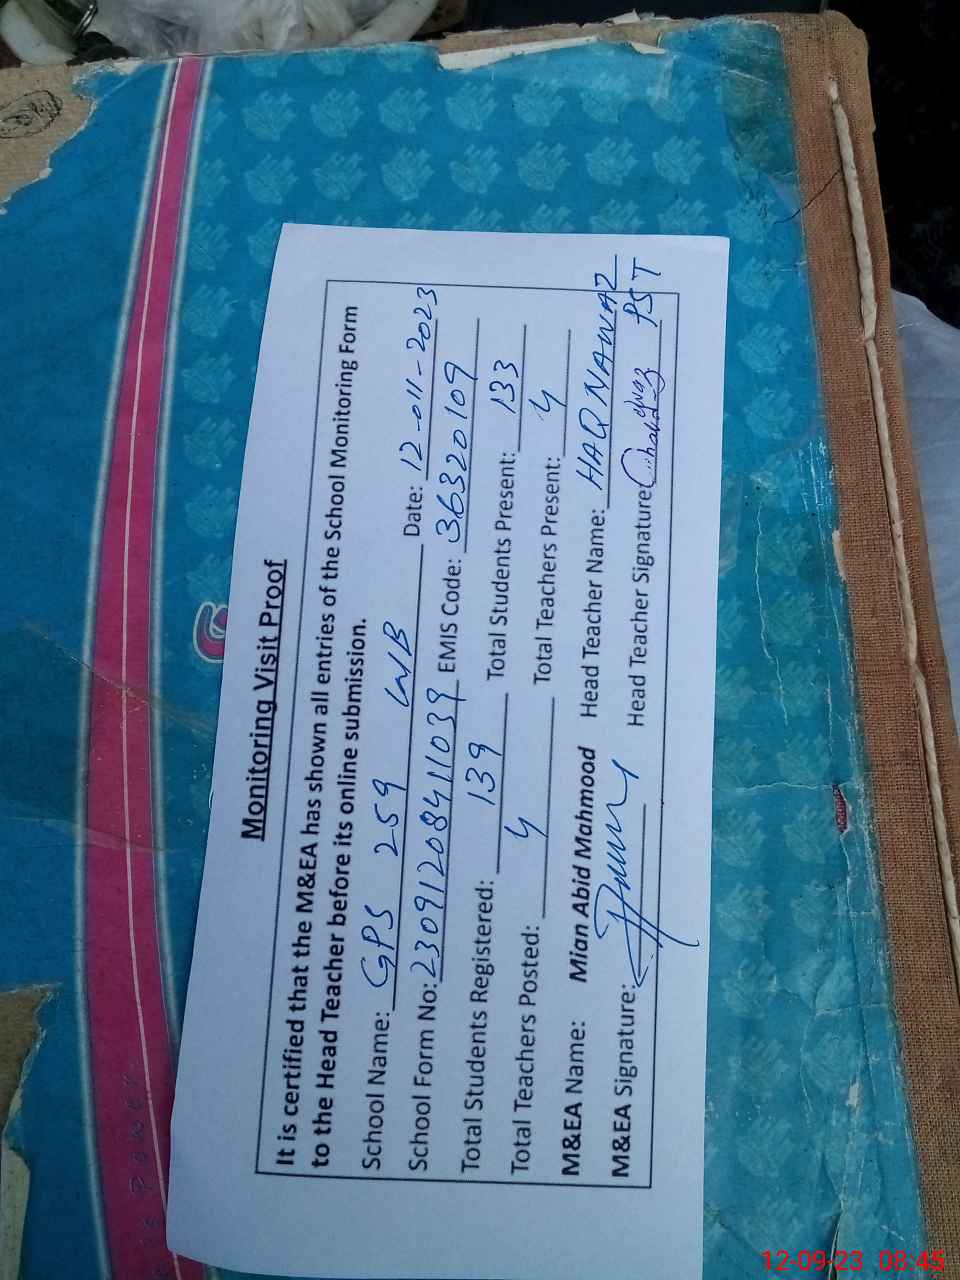 Monitoring Visit Proof
It is certified that the M&EA has shown all entries of the School Monitoring Form
to the Head Teacher before its online submission.
School Name: GPS 259 W/B Date: 12-011-2023
School Form No: 230912084111039 EMIS Code: 36320109
Total Students Registered: 139 Total Students Present: 133
Total Teachers Posted: 4 Total Teachers Present: 4
M&EA Name: Mian Abid Mahmood Head Teacher Name: HAQ NAWAZ
M&EA Signature: Head Teacher Signature PST
Power
12-09-23 08:45